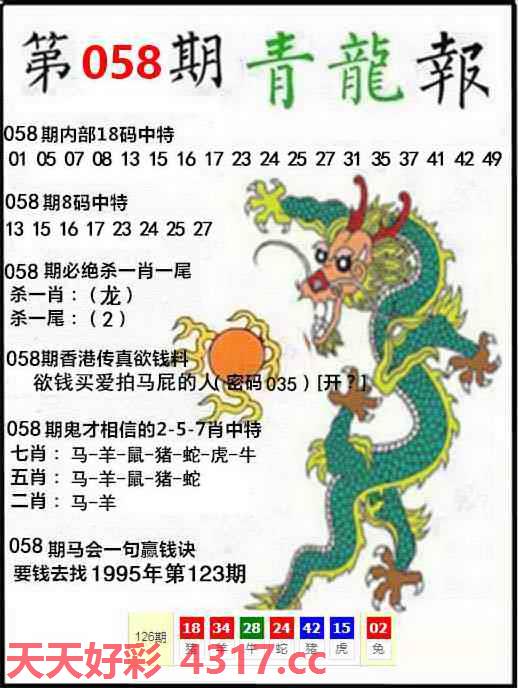 第058期 青龍報
058期内部18码中特
01 05 07 08 13 15 16 17 23 24 25 27 31 35 37 41 42 49
058期8码中特
13 15 16 17 23 24 25 27
058 期必绝杀一肖一尾
杀一肖：（龙）
杀一尾：（2）
058期香港传真欲钱料
欲钱买爱拍马屁的人(密码035)[开？]
058期鬼才相信的2-5-7肖中特
七肖：马-羊-鼠-猪-蛇-虎-牛
五肖：马-羊-鼠-猪-蛇
二肖：马-羊
058期马会一句赢钱诀
要钱去找1995年第123期
126期 18 34 28 24 42 15 02
猪 羊 牛 蛇 猪 虎 兔
天天好彩 4317.cc